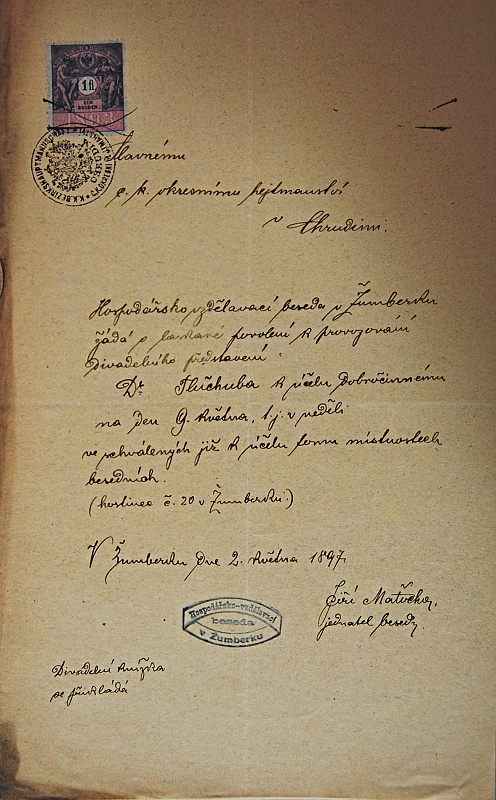 1 fl.
EIN
GULDEN
1893
Slavnému
c. k. okresnímu hejtmanství
v Chrudimi.
Hospodářsko vzdělavací beseda v Žumberku
žádá o laskavé povolení k provozování
divadelního představení
Dr Hluchuba k účelu dobročinnému
na den 9. května, t. j. v neděli
ve schválených již k účelu tomu místnostech
besedních.
(hostinec č. 20 v Žumberku.)
V Žumberku dne 2. května 1897.
Jiří
jednatel besedy
Hospodářsko-vzdělavací
beseda
v Žumberku
Divadelní knížka
se přikládá